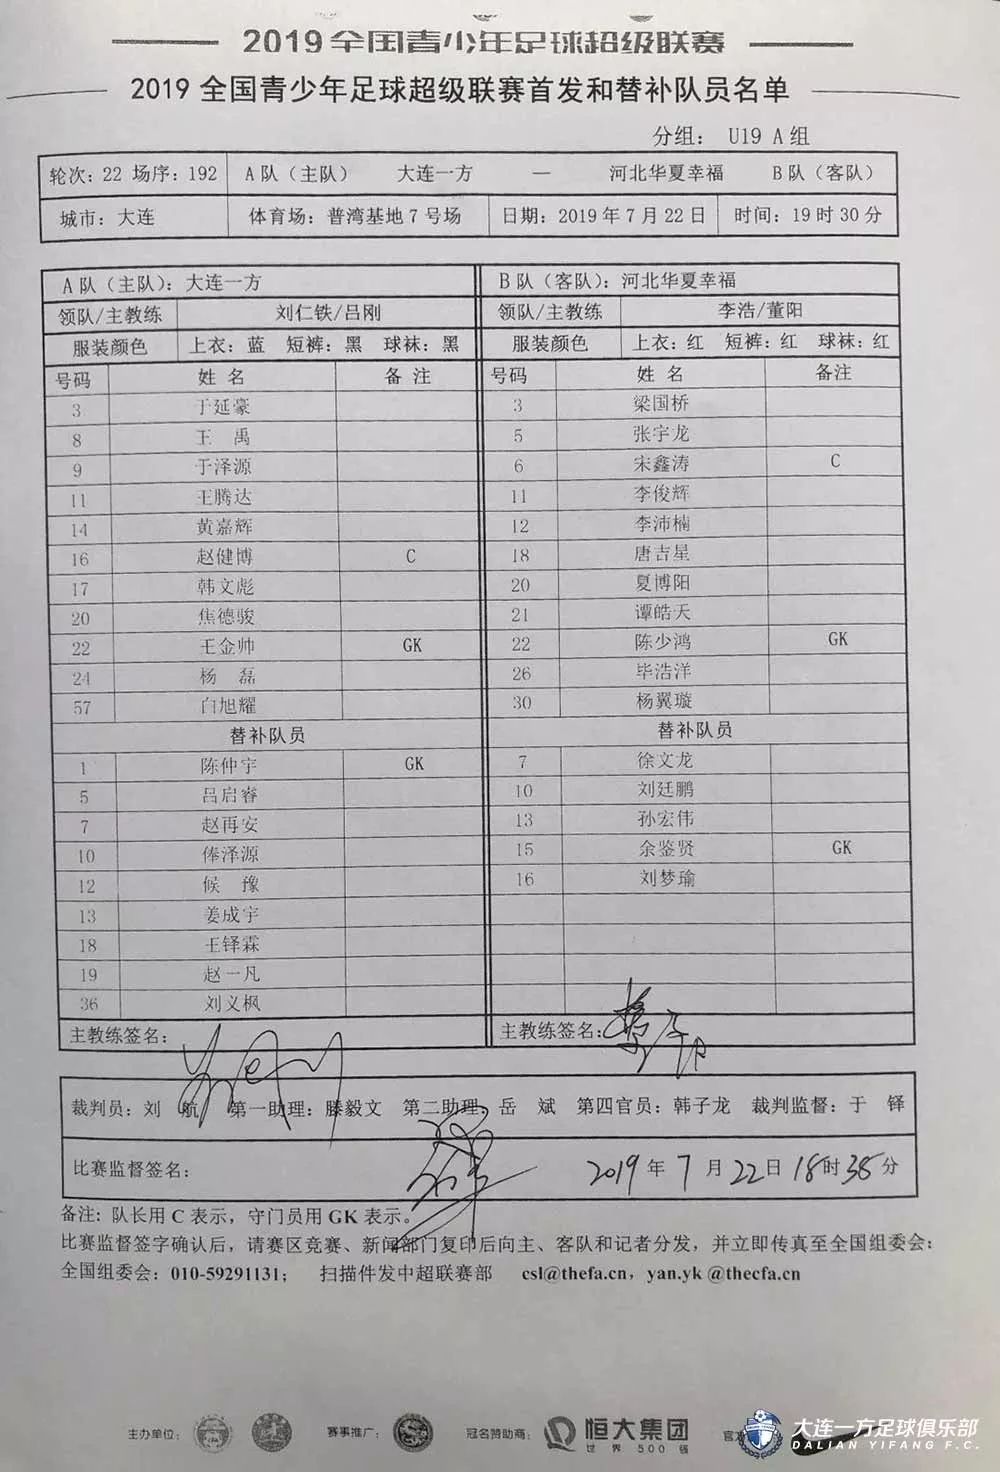 2019全国青少年足球超级联赛
2019 全国青少年足球超级联赛首发和替补队员名单
分组： U19 A 组
轮次：22 场序：192 A 队（主队） 大连一方 — 河北华夏幸福 B 队（客队）
城市：大连 体育场：普湾基地 7 号场 日期：2019 年 7 月 22 日 时间：19 时 30 分
A 队（主队）：大连一方 B 队（客队）：河北华夏幸福
领队/主教练 刘仁铁/吕刚 领队/主教练 李浩/董阳
服装颜色 上衣：蓝 短裤：黑 球袜：黑 服装颜色 上衣：红 短裤：红 球袜：红
号码 姓 名 备 注 号码 姓 名 备注
3 于延豪 3 梁国桥
8 王 禹 5 张宇龙
9 于泽源 6 宋鑫涛 C
11 王腾达 11 李俊辉
14 黄嘉辉 12 李沛楠
16 赵健博 C 18 唐吉星
17 韩文彪 20 夏博阳
20 焦德骏 21 谭皓天
22 王金帅 GK 22 陈少鸿 GK
24 杨 磊 26 毕浩洋
57 白旭耀 30 杨翼璇
替补队员 替补队员
1 陈仲宇 GK 7 徐文龙
5 吕启睿 10 刘廷鹏
7 赵再安 13 孙宏伟
10 俸泽源 15 余鉴贤 GK
12 候 豫 16 刘梦瑜
13 姜成宇
18 王铎霖
19 赵一凡
36 刘义枫
主教练签名： 主教练签名：
裁判员：刘 航 第一助理：滕毅文 第二助理：岳 斌 第四官员：韩子龙 裁判监督：于 铎
比赛监督签名： 2019 年 7 月 22 日 18 时 38 分
备注：队长用 C 表示，守门员用 GK 表示。
比赛监督签字确认后，请赛区竞赛、新闻部门复印后向主、客队和记者分发，并立即传真至全国组委会：
全国组委会：010-59291131； 扫描件发中超联赛部 csl@thefa.cn，yan.yk @thecfa.cn
主办单位： 赛事推广： 冠名赞助商： 恒大集团 官方
世界500强
大连一方足球俱乐部
DALIAN YIFANG F.C.